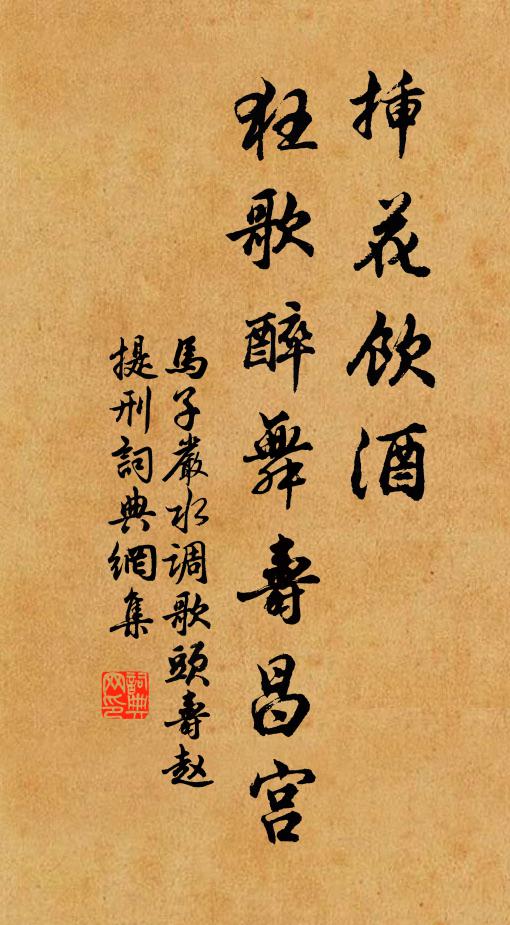 挿花飲酒
狂歌醉舞壽昌宮
馬子嚴水调歌頭壽赵
提刑詞典網集
詞典网印